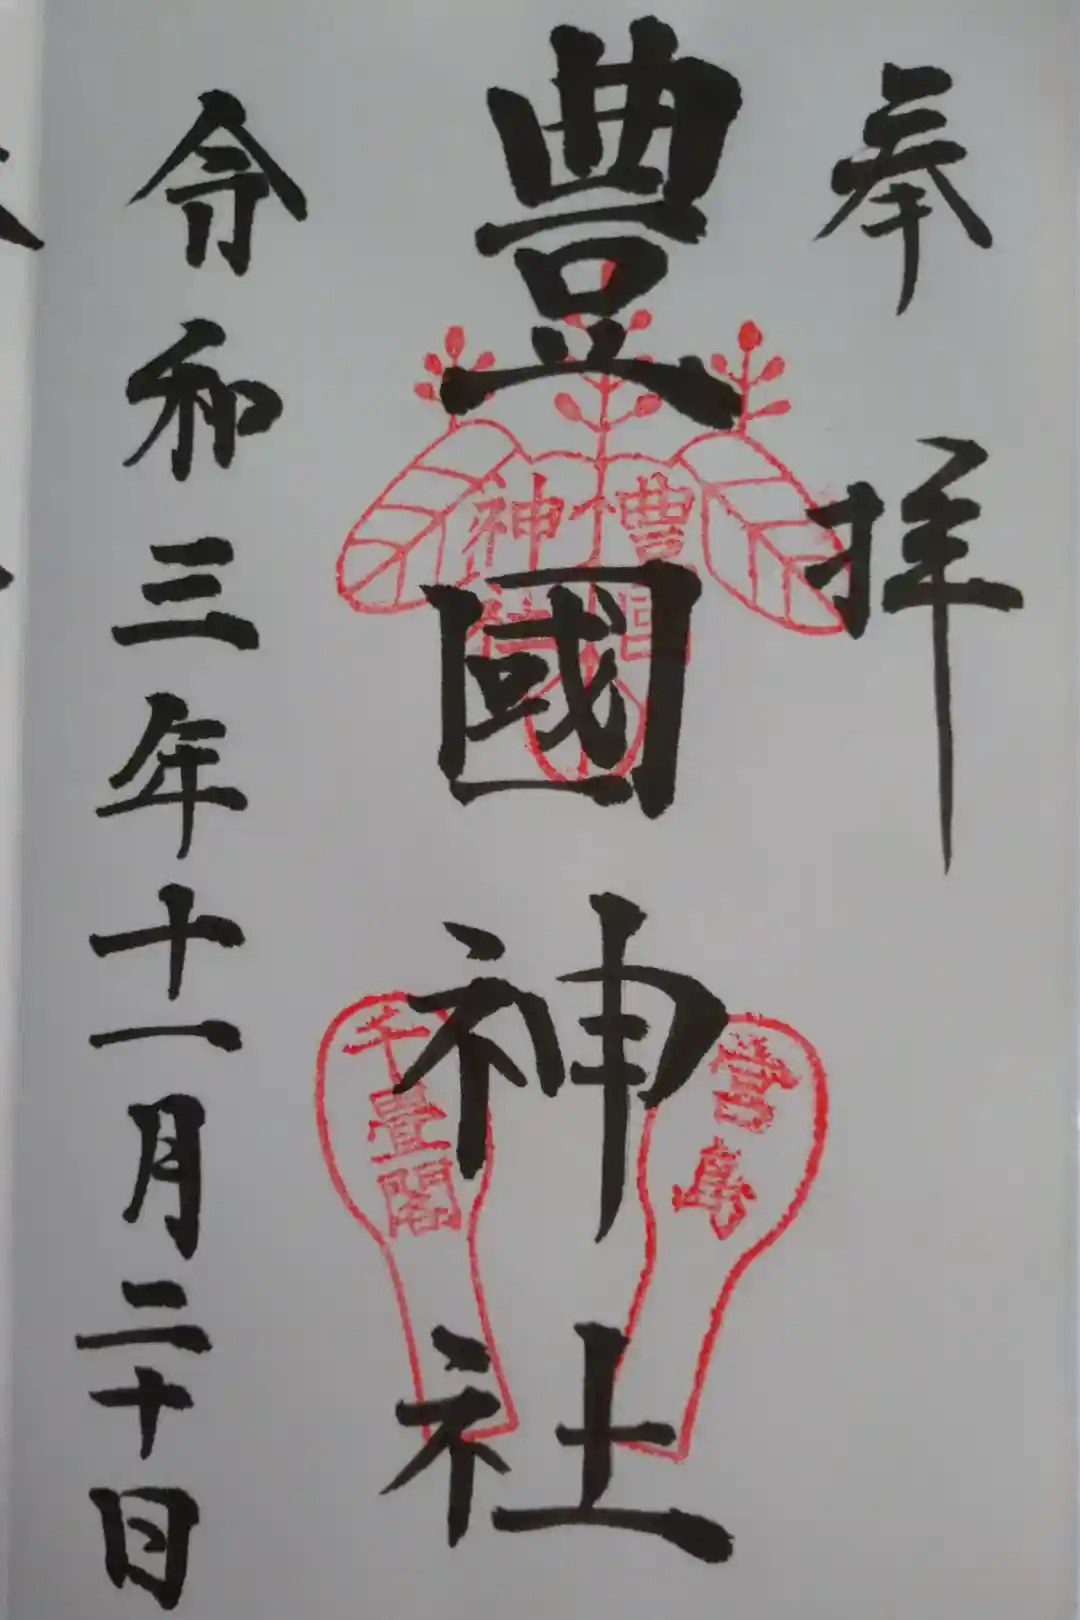 奉拝
豊國神社
豊国
神社
宮島
千畳閣
令和三年十一月二十日